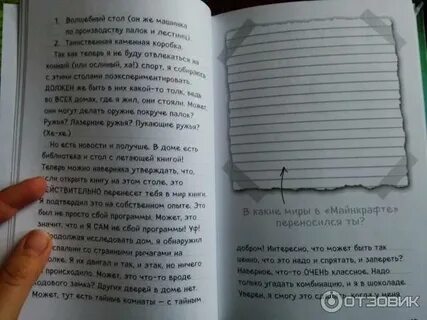 1. Волшебный стол (он же машинка
по производству палок и лестниц).
2. Таинственная каменная коробка.
Так как теперь я не буду отвлекаться на
конный (или ослиный, ха!) спорт, я собираюсь
с этими столами поэкспериментировать.
ДОЛЖЕН же быть в них какой-то толк, ведь
во ВСЕХ домах, где я жил, они стояли. Может,
они могут делать оружие покруче палок?
Ружья? Лазерные ружья? Пукающие ружья?
(Хе-хе.)
Но есть новости и получше. В доме есть
библиотека и стол с летающей книгой!
Теперь можно наверняка утверждать, что,
если открыть книгу на этом столе, это
ДЕЙСТВИТЕЛЬНО перенесет тебя в мир книги.
Я подтвердил это на собственном опыте. Это
был не просто сбой программы. Может, это
значит, что и Я САМ не сбой программы! Уф!
Продолжая исследовать дом, я обнаружил
спальни со странными рычагами на
Я их двигал и так, и этак, но ничего
происходило. Может, это что-то вроде
кодового замка? Других дверей в доме нет.
Может, тут есть тайные комнаты — с тайным
В какие миры в «Майнкрафте»
переносился ты?
добром! Интересно, что может быть так
ценно, что это надо и спрятать, и запереть?
Наверное, что-то ОЧЕНЬ классное. Надо
только угадать комбинацию, и я в шоколаде.
Уверен, я смогу это сделать, когда у меня
ОТЗОВИК